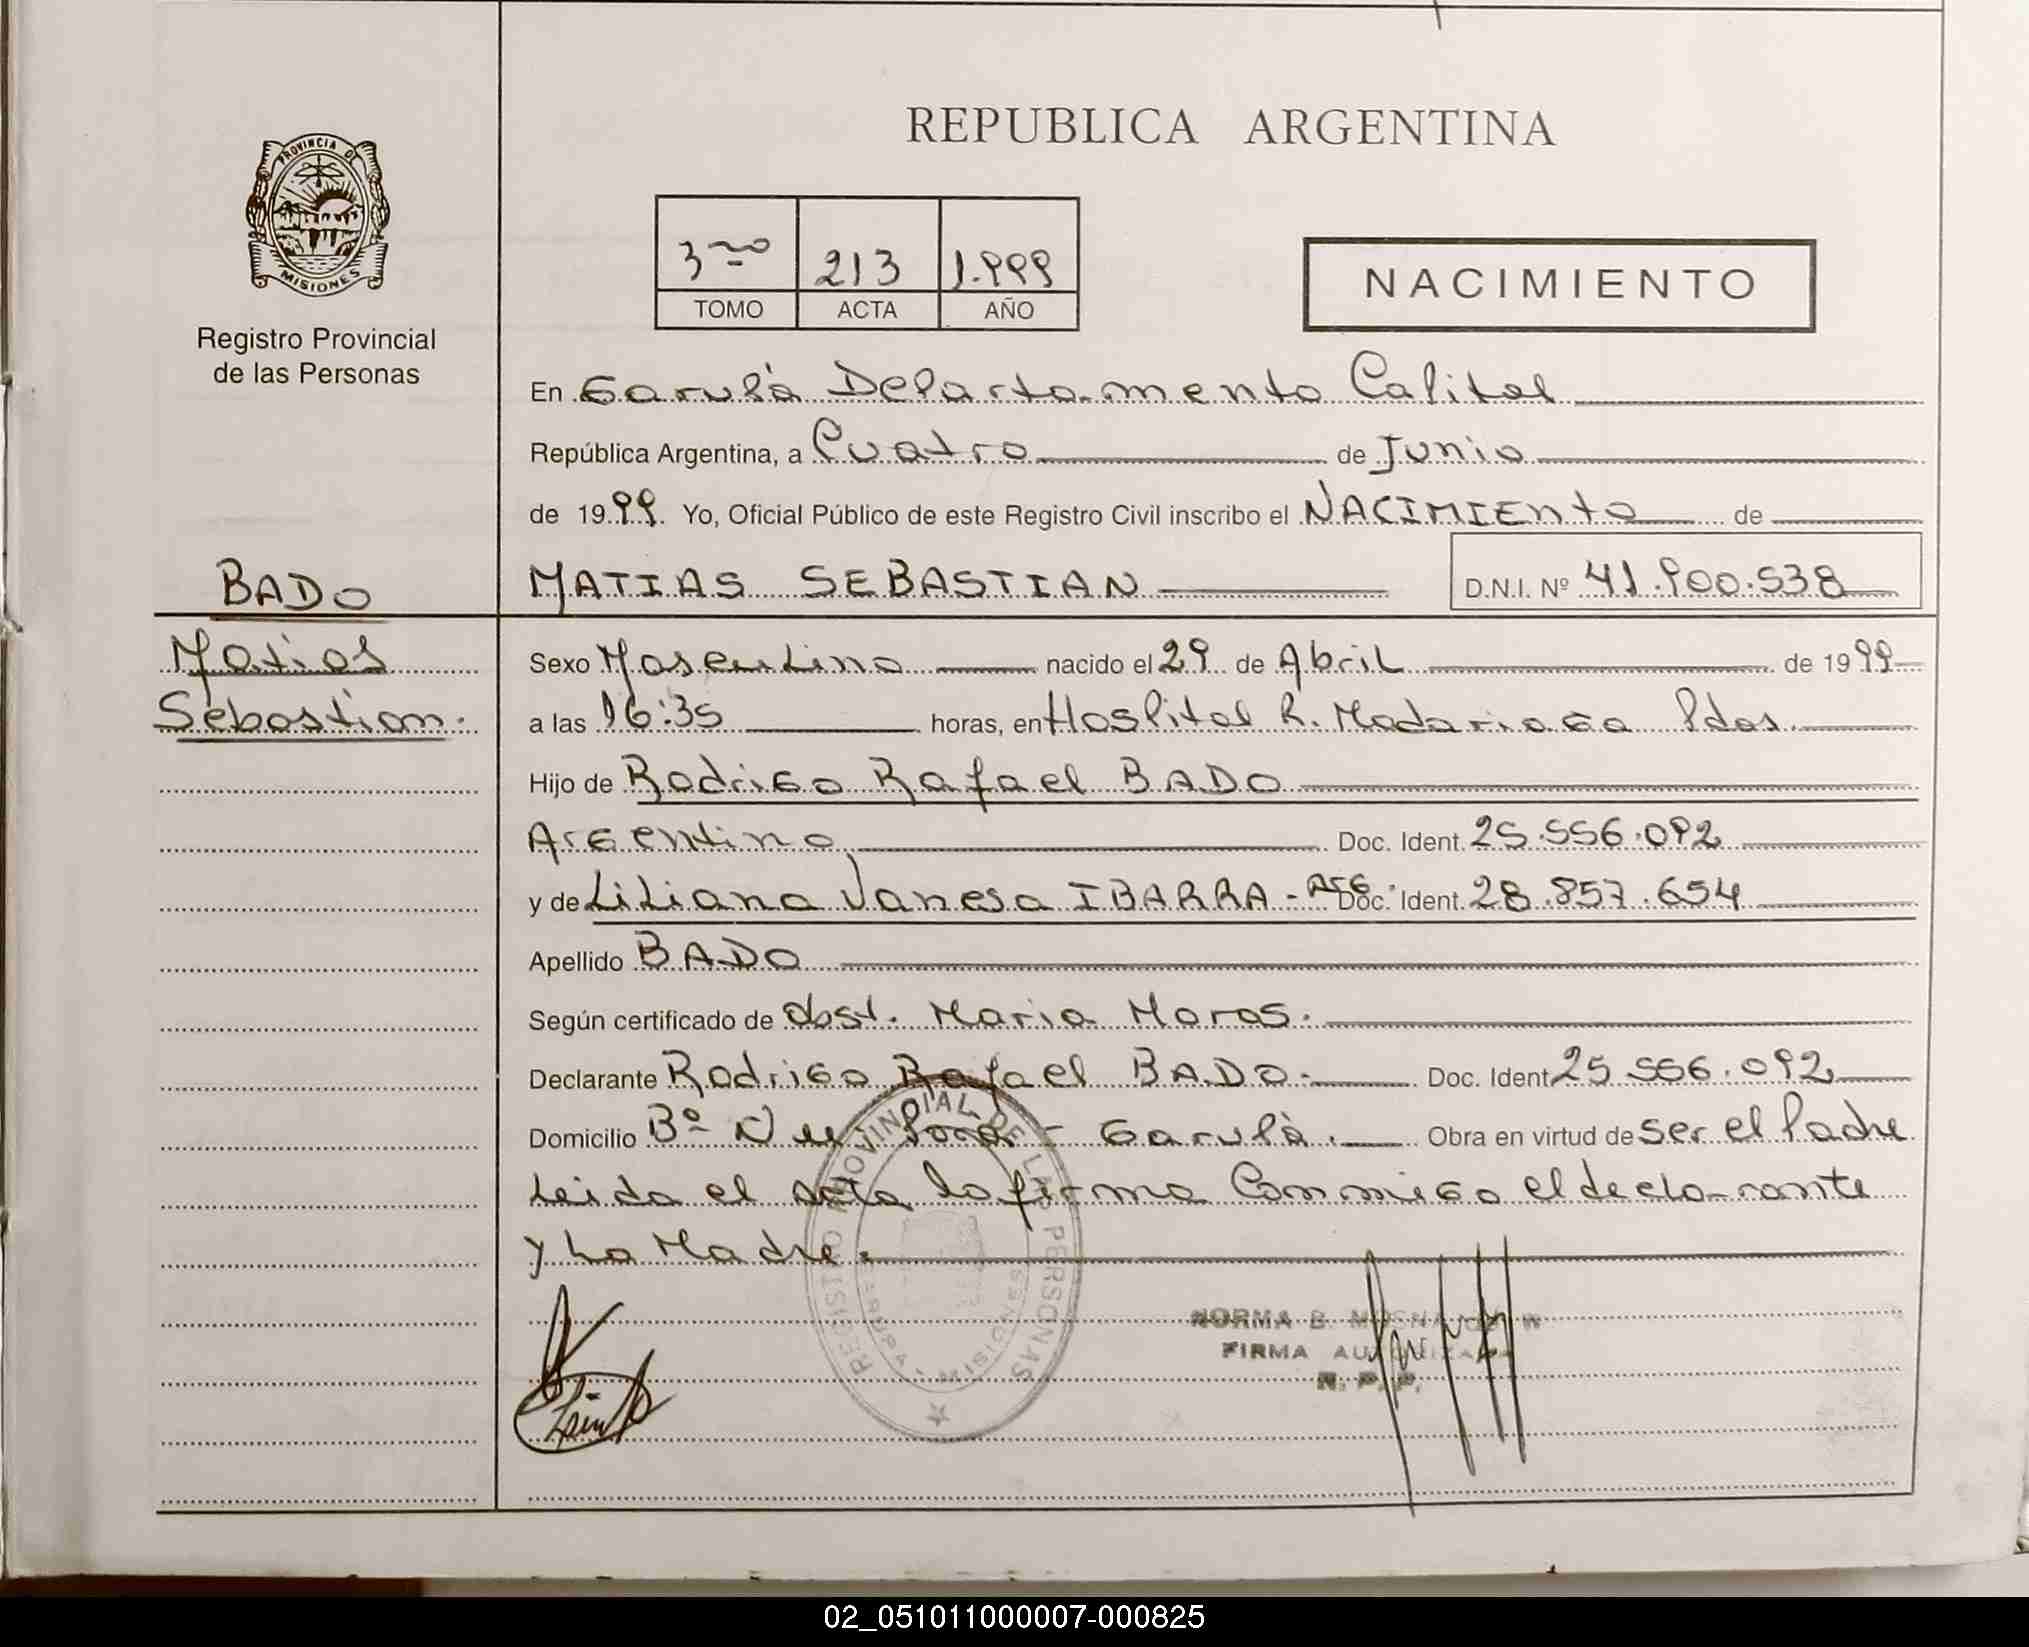 REPUBLICA ARGENTINA
PROVINCIA DE
MISIONES
Registro Provincial
de las Personas
3ro 213 1.999
TOMO ACTA AÑO
NACIMIENTO
En Garupá Departamento Capital
República Argentina, a Cuatro de Junio
de 1999. Yo, Oficial Público de este Registro Civil inscribo el NACIMIENTO de
BADO
MATIAS SEBASTIAN D.N.I. Nº 41.900.538
Matias
Sebastian.
Sexo Masculino nacido el 29 de Abril de 1999
a las 16:35 horas, en Hospital R. Madariaga Pdas.
Hijo de Rodrigo Rafael BADO
Argentino Doc. Ident. 25.556.092
y de Liliana Vanesa IBARRA - Arg. Doc. Ident. 28.857.654
Apellido BADO
Según certificado de obst. Maria Moras.
Declarante Rodrigo Rafael BADO. Doc. Ident. 25.556.092
Domicilio Bº Ñu Porá - Garupá. Obra en virtud de ser el Padre
Leida el acta la firma Conmigo el declarante
y La Madre.
REGISTRO PROVINCIAL DE LAS PERSONAS
GARUPA - MISIONES
NORMA B.
FIRMA AUTORIZADA
R. P. P.
02_051011000007-000825